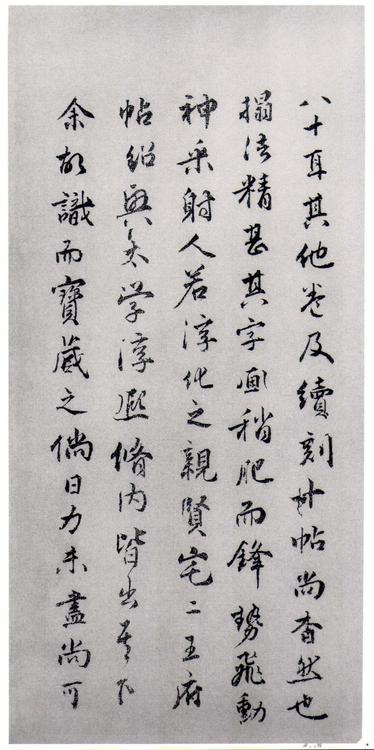 八十耳其他卷及續刻廿帖尚杳然也
搨法精甚其字画稍肥而鋒勢飛動
神采射人若淳化之親賢宅二王府
帖紹興太学淳熙脩内皆出其下
余故識而寶蔵之倘日力未盡尚可